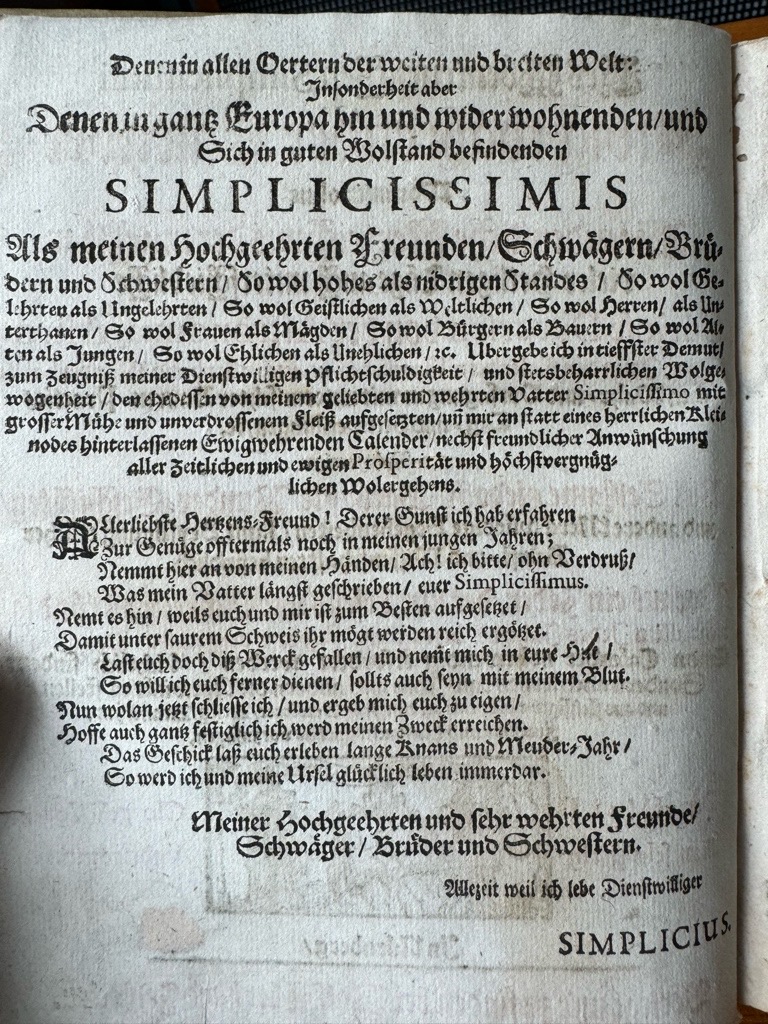 Denen in allen Oertern der weiten und breiten Welt:
Insonderheit aber
Denen in gantz Europa hin und wider wohnenden/und
Sich in guten Wolstand befindenden
SIMPLICISSIMIS
Als meinen Hochgeehrten Freunden/Schwägern/Brü-
dern und Schwestern/ So wol hohes als nidrigen Standes / So wol Ge-
lehrten als Ungelehrten / So wol Geistlichen als Weltlichen / So wol Herren/ als Un-
terthanen / So wol Frauen als Mägden / So wol Bürgern als Bauern / So wol Al-
ten als Jungen / So wol Ehlichen als Unehlichen / ꝛc. Ubergebe ich in tieffster Demut/
zum Zeugniß meiner Dienstwilligen Pflichtschuldigkeit / und stetsbeharrlichen Wolge-
wogenheit / den ehedessen von meinem geliebten und wehrten Vatter Simplicissimo mit
grosser Mühe und unverdrossenem Fleiß aufgesetzten/uñ mir an statt eines herrlichen Klei-
nodes hinterlassenen Ewigwehrenden Calender/nechst freundlicher Anwünschung
aller Zeitlichen und ewigen Prosperität und höchstvergnüg-
lichen Wolergehens.
ALlerliebste Hertzens-Freund! Derer Gunst ich hab erfahren
Zur Genüge offtermals noch in meinen jungen Jahren;
Nemmt hier an von meinen Händen/ Ach! ich bitte/ ohn Verdruß/
Was mein Vatter längst geschrieben/ euer Simplicissimus.
Nemt es hin / weils euch und mir ist zum Besten aufgesetzet /
Damit unter saurem Schweis ihr mögt werden reich ergötzet.
Last euch doch diß Werck gefallen / und nemt mich in eure Hut /
So will ich euch ferner dienen / sollts auch seyn mit meinem Blut.
Nun wolan jetzt schliesse ich / und ergeb mich euch zu eigen /
Hoffe auch gantz festiglich ich werd meinen Zweck erreichen.
Das Geschick laß euch erleben lange Knans und Meuder-Jahr /
So werd ich und meine Ursel glücklich leben immerdar.
Meiner Hochgeehrten und sehr wehrten Freunde/
Schwäger / Brüder und Schwestern.
Allezeit weil ich lebe Dienstwilliger
SIMPLICIUS.